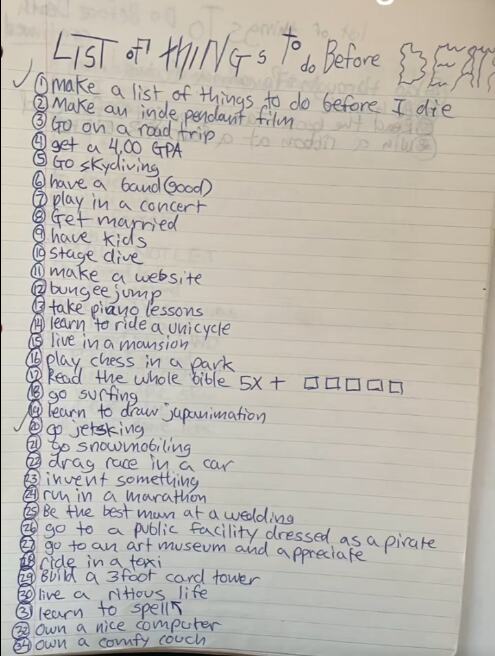 LIST of THINGs To do Before DEAT
✓ ① make a list of things to do before I die
② Make an independant film
③ Go on a road trip
④ get a 4.00 GPA
⑤ Go skydiving
⑥ have a band (good)
⑦ play in a concert
⑧ Get married
⑨ have kids
⑩ stage dive
⑪ make a website
⑫ bungee jump
⑬ take piano lessons
⑭ learn to ride a unicycle
⑮ live in a mansion
⑯ play chess in a park
⑰ Read the whole bible 5x + □□□□□
⑱ go surfing
⑲ learn to draw japanimation
✓ ⑳ go jetsking
㉑ go snowmobiling
㉒ drag race in a car
㉓ invent something
㉔ run in a marathon
㉕ Be the best man at a wedding
㉖ go to a public facility dressed as a pirate
㉗ go to an art museum and appreciate
㉘ ride in a taxi
㉙ Build a 3foot card tower
㉚ live a ritious life
㉛ learn to spell ↖
㉜ own a nice computer
㉞ own a comfy couch